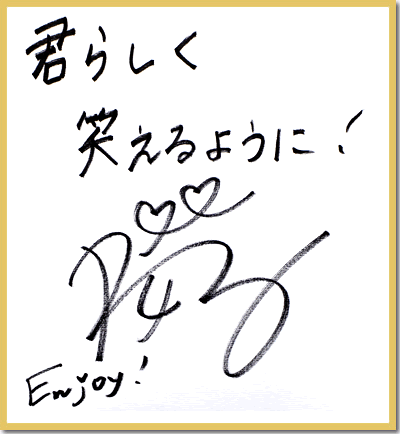 君らしく
笑えるように!
Enjoy!